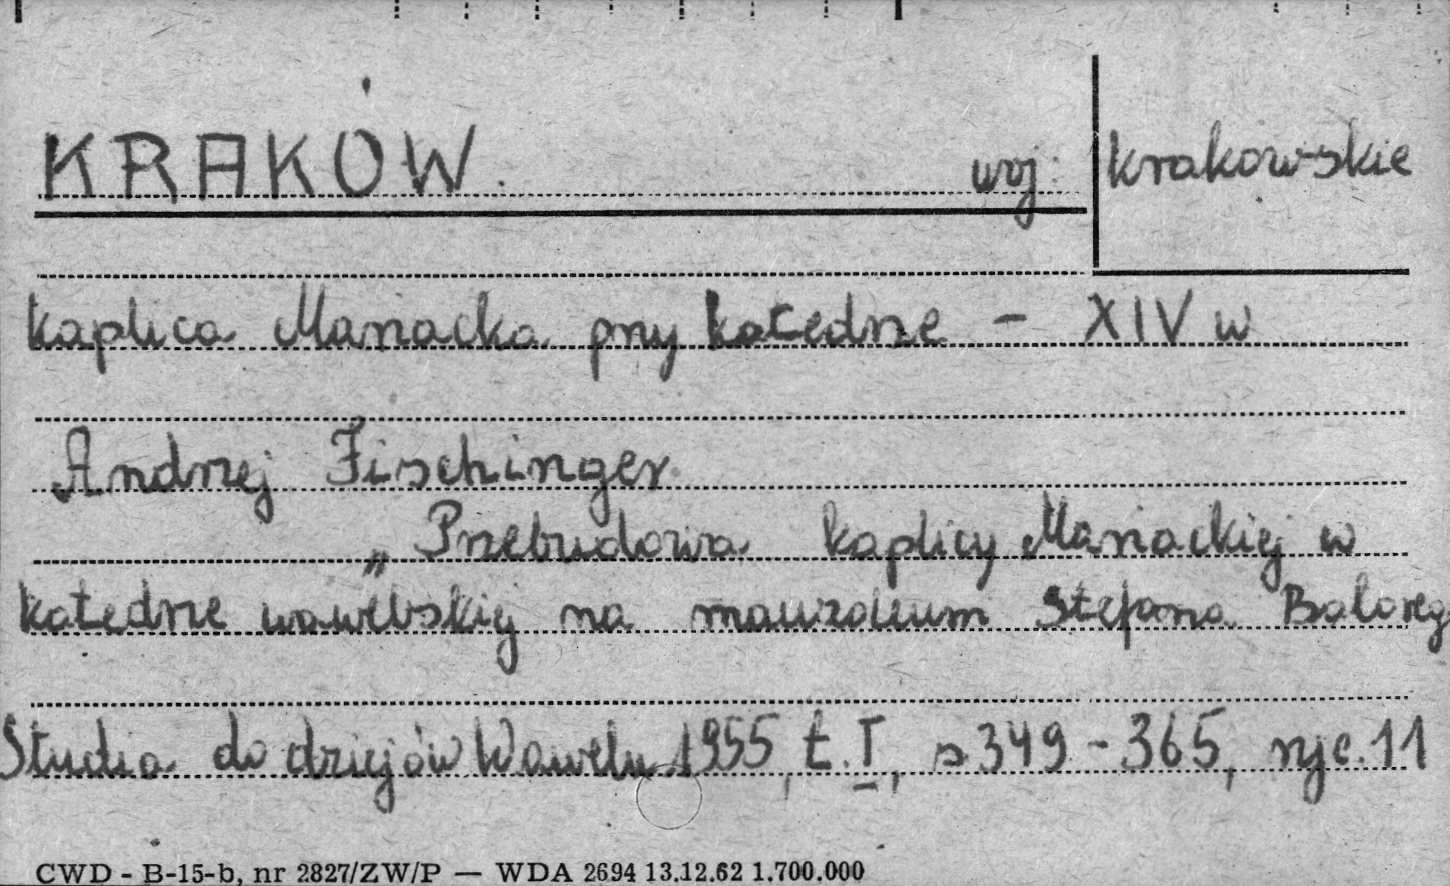 KRAKÓW woj: krakowskie
Kaplica Mariacka przy katedrze - XIV w
Andrzej Fischinger
„Przebudowa kaplicy Mariackiej w
katedrze wawelskiej na mauzoleum Stefana Batoreg
Studia do dziejów Wawelu 1955, t. I, s. 349-365, ryc. 11
CWD - B-15-b, nr 2827/ZW/P — WDA 2694 13.12.62 1.700.000